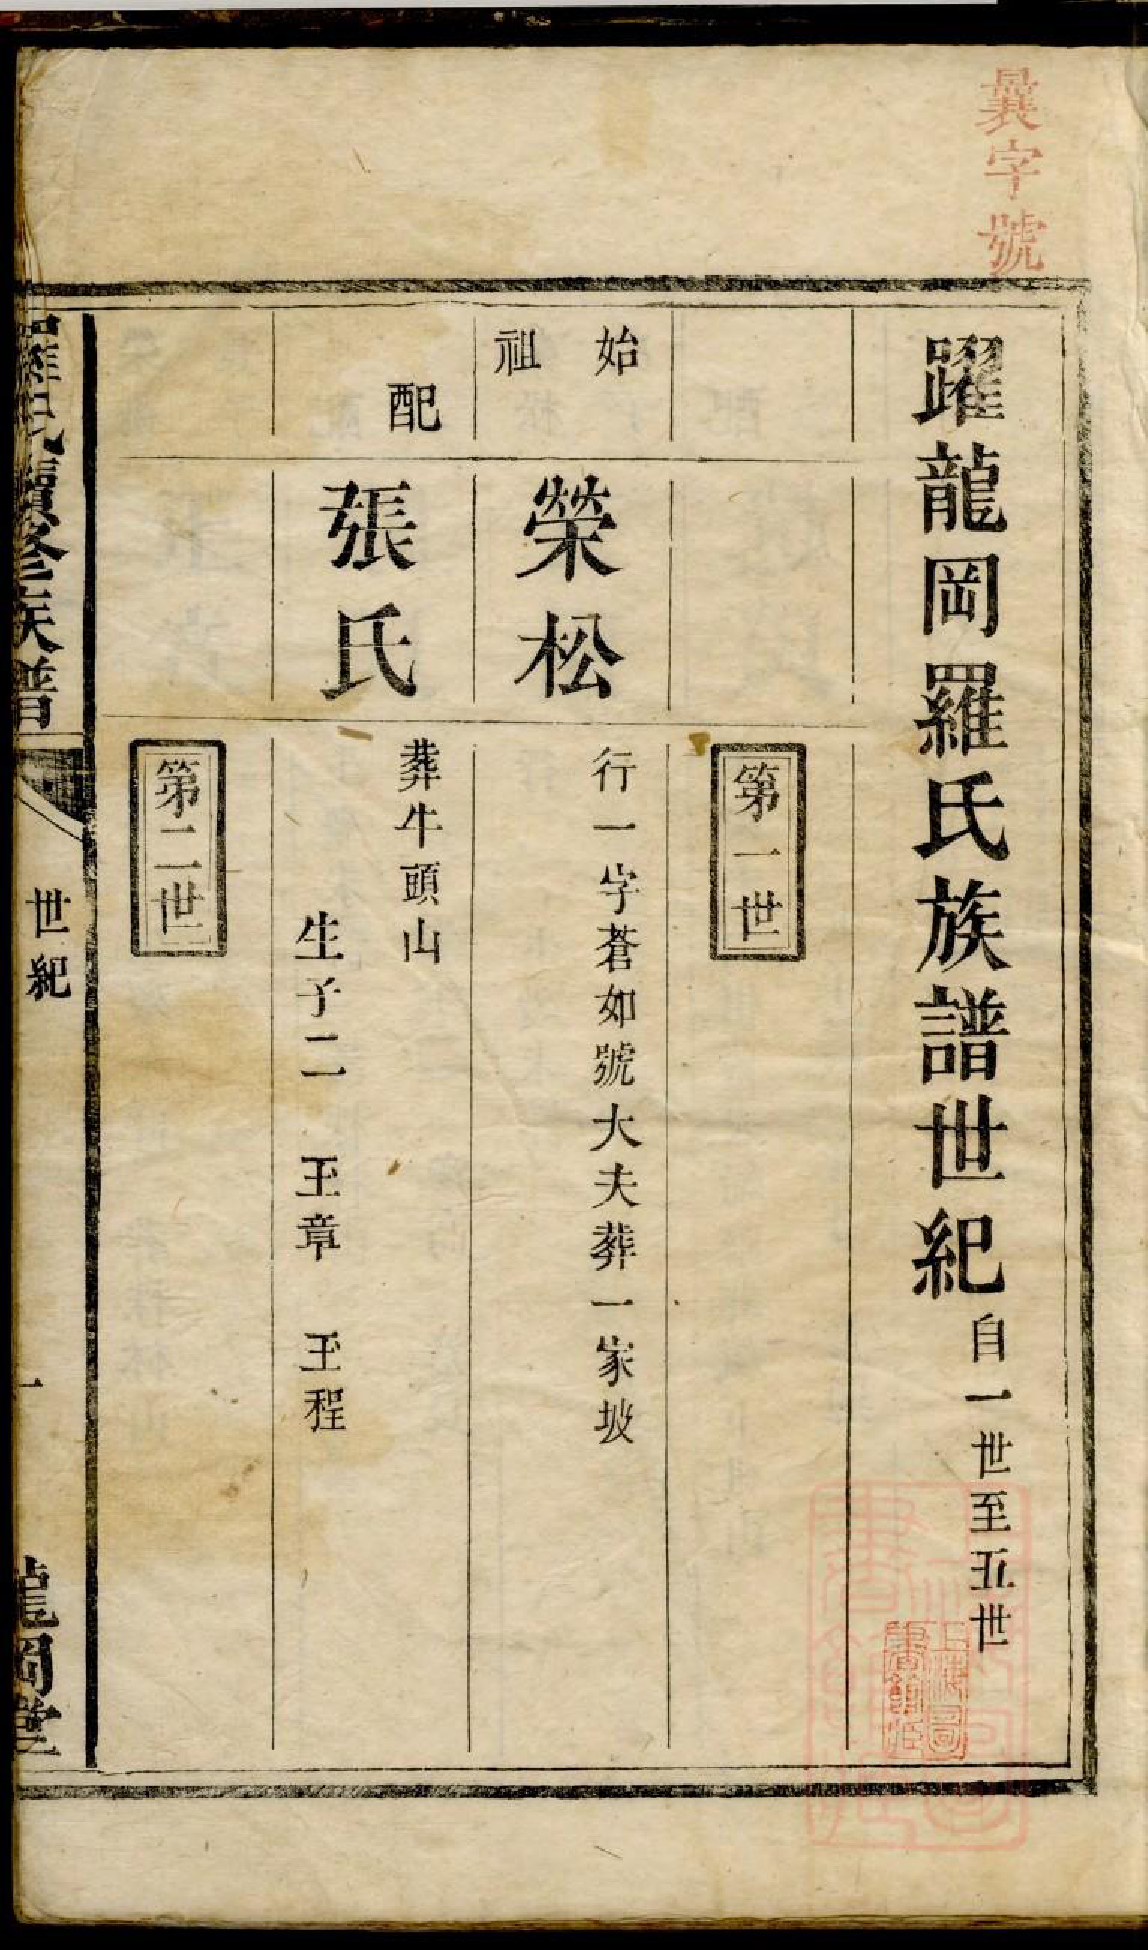 曩字號
躍龍岡羅氏族譜世紀 自一世至五世
第一世
始祖 榮松 行一字蒼如號大夫葬一家坡
配 張氏 葬牛頭山
生子二 玉章 玉程
第二世
羅氏續修族譜 世紀 一 龍岡堂
上海圖書館藏